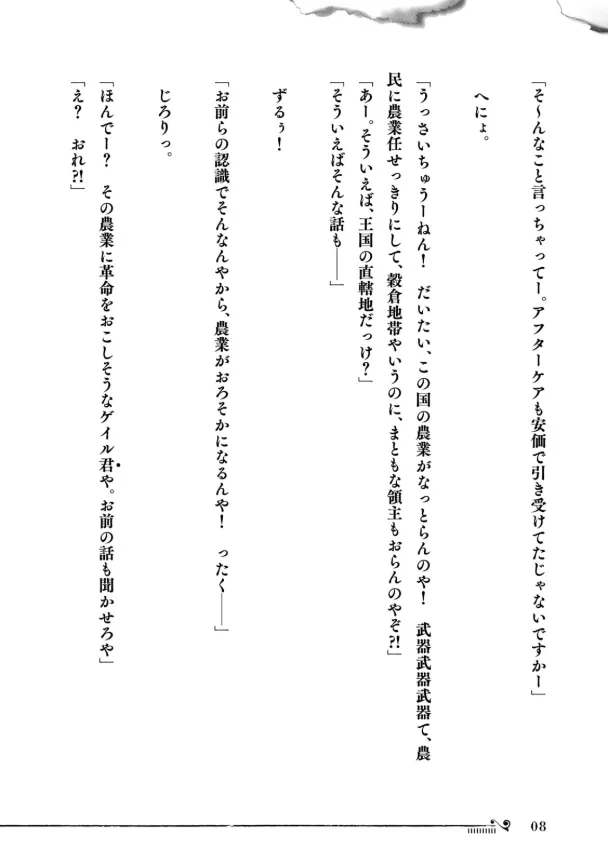 「そ～んなこと言っちゃってー。アフターケアも安価で引き受けてたじゃないですかー」
へにょ。
「うっさいちゅうーねん！　だいたい、この国の農業がなっとらんのや！　武器武器武器て、農
民に農業任せっきりにして、穀倉地帯やいうのに、まともな領主もおらんのやぞ?!」
「あー。そういえば、王国の直轄地だっけ？」
「そういえばそんな話も――」
ずるぅ！
「お前らの認識でそんなんやから、農業がおろそかになるんや！　ったく――」
じろりっ。
「ほんでー？　その農業に革命をおこしそうなゲイル君や。お前の話も聞かせろや」
「え？　おれ?!」
08